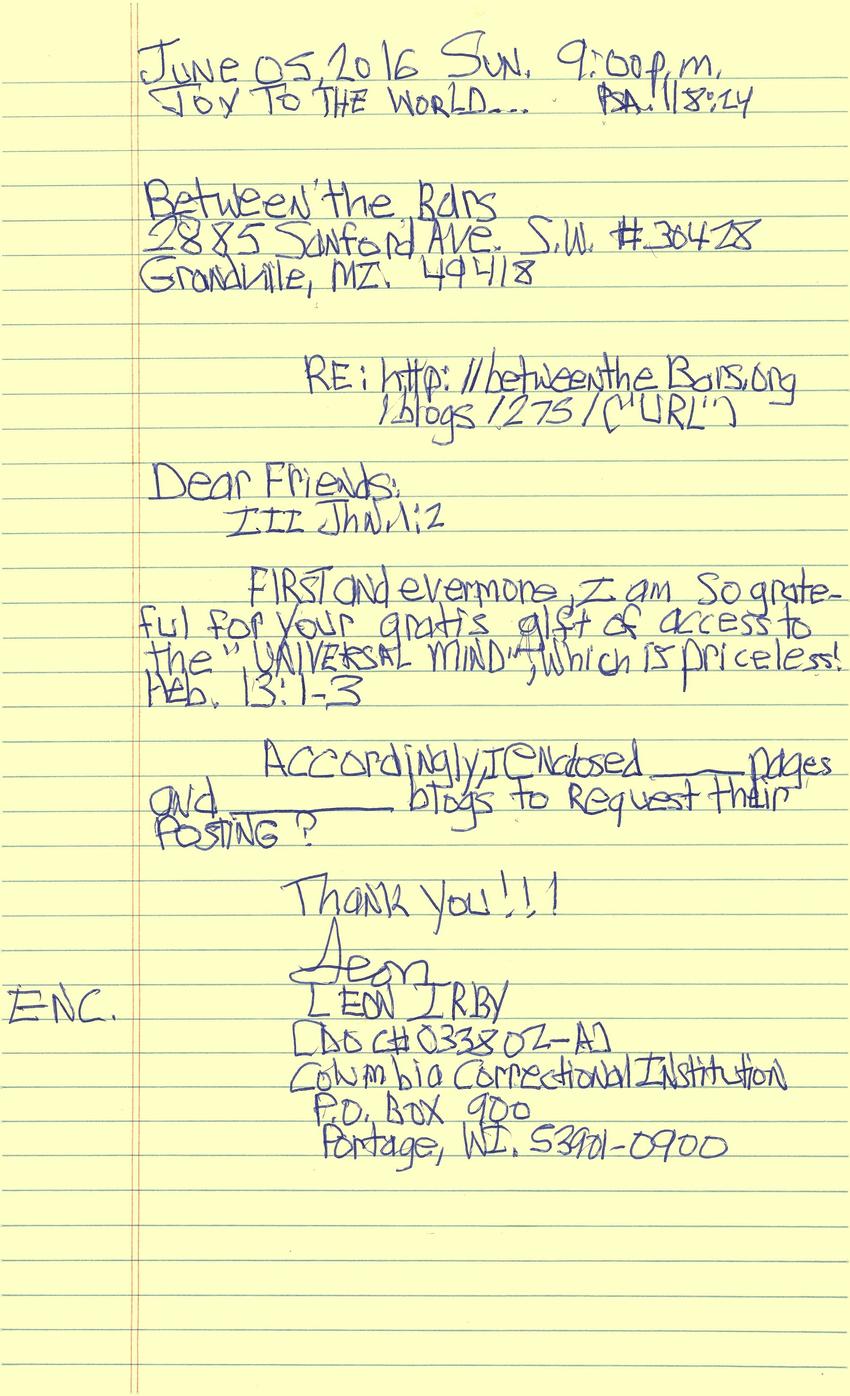 June 05, 2016 Sun. 9:00p.m.
Joy To THE WORLD... PSA. 118:24
Between the Bars
2885 Sanford Ave. S.W. #30428
Grandville, MI. 49418
RE: http://betweenthe Bars.org
/blogs/275/("URL")
Dear Friends:
III Jhn.1:2
FIRST and evermore, I am so grate-
ful for your gratis gift of access to
the "UNIVERSAL MIND", which is priceless!
Heb. 13:1-3
Accordingly, I enclosed ______ pages
and __________ blogs to Request their
POSTING?
Thank you!!!
Leon
ENC.
LEON IRBY
[DOC# 033802-A]
Columbia Correctional Institution
P.O. Box 900
Portage, WI. 53901-0900